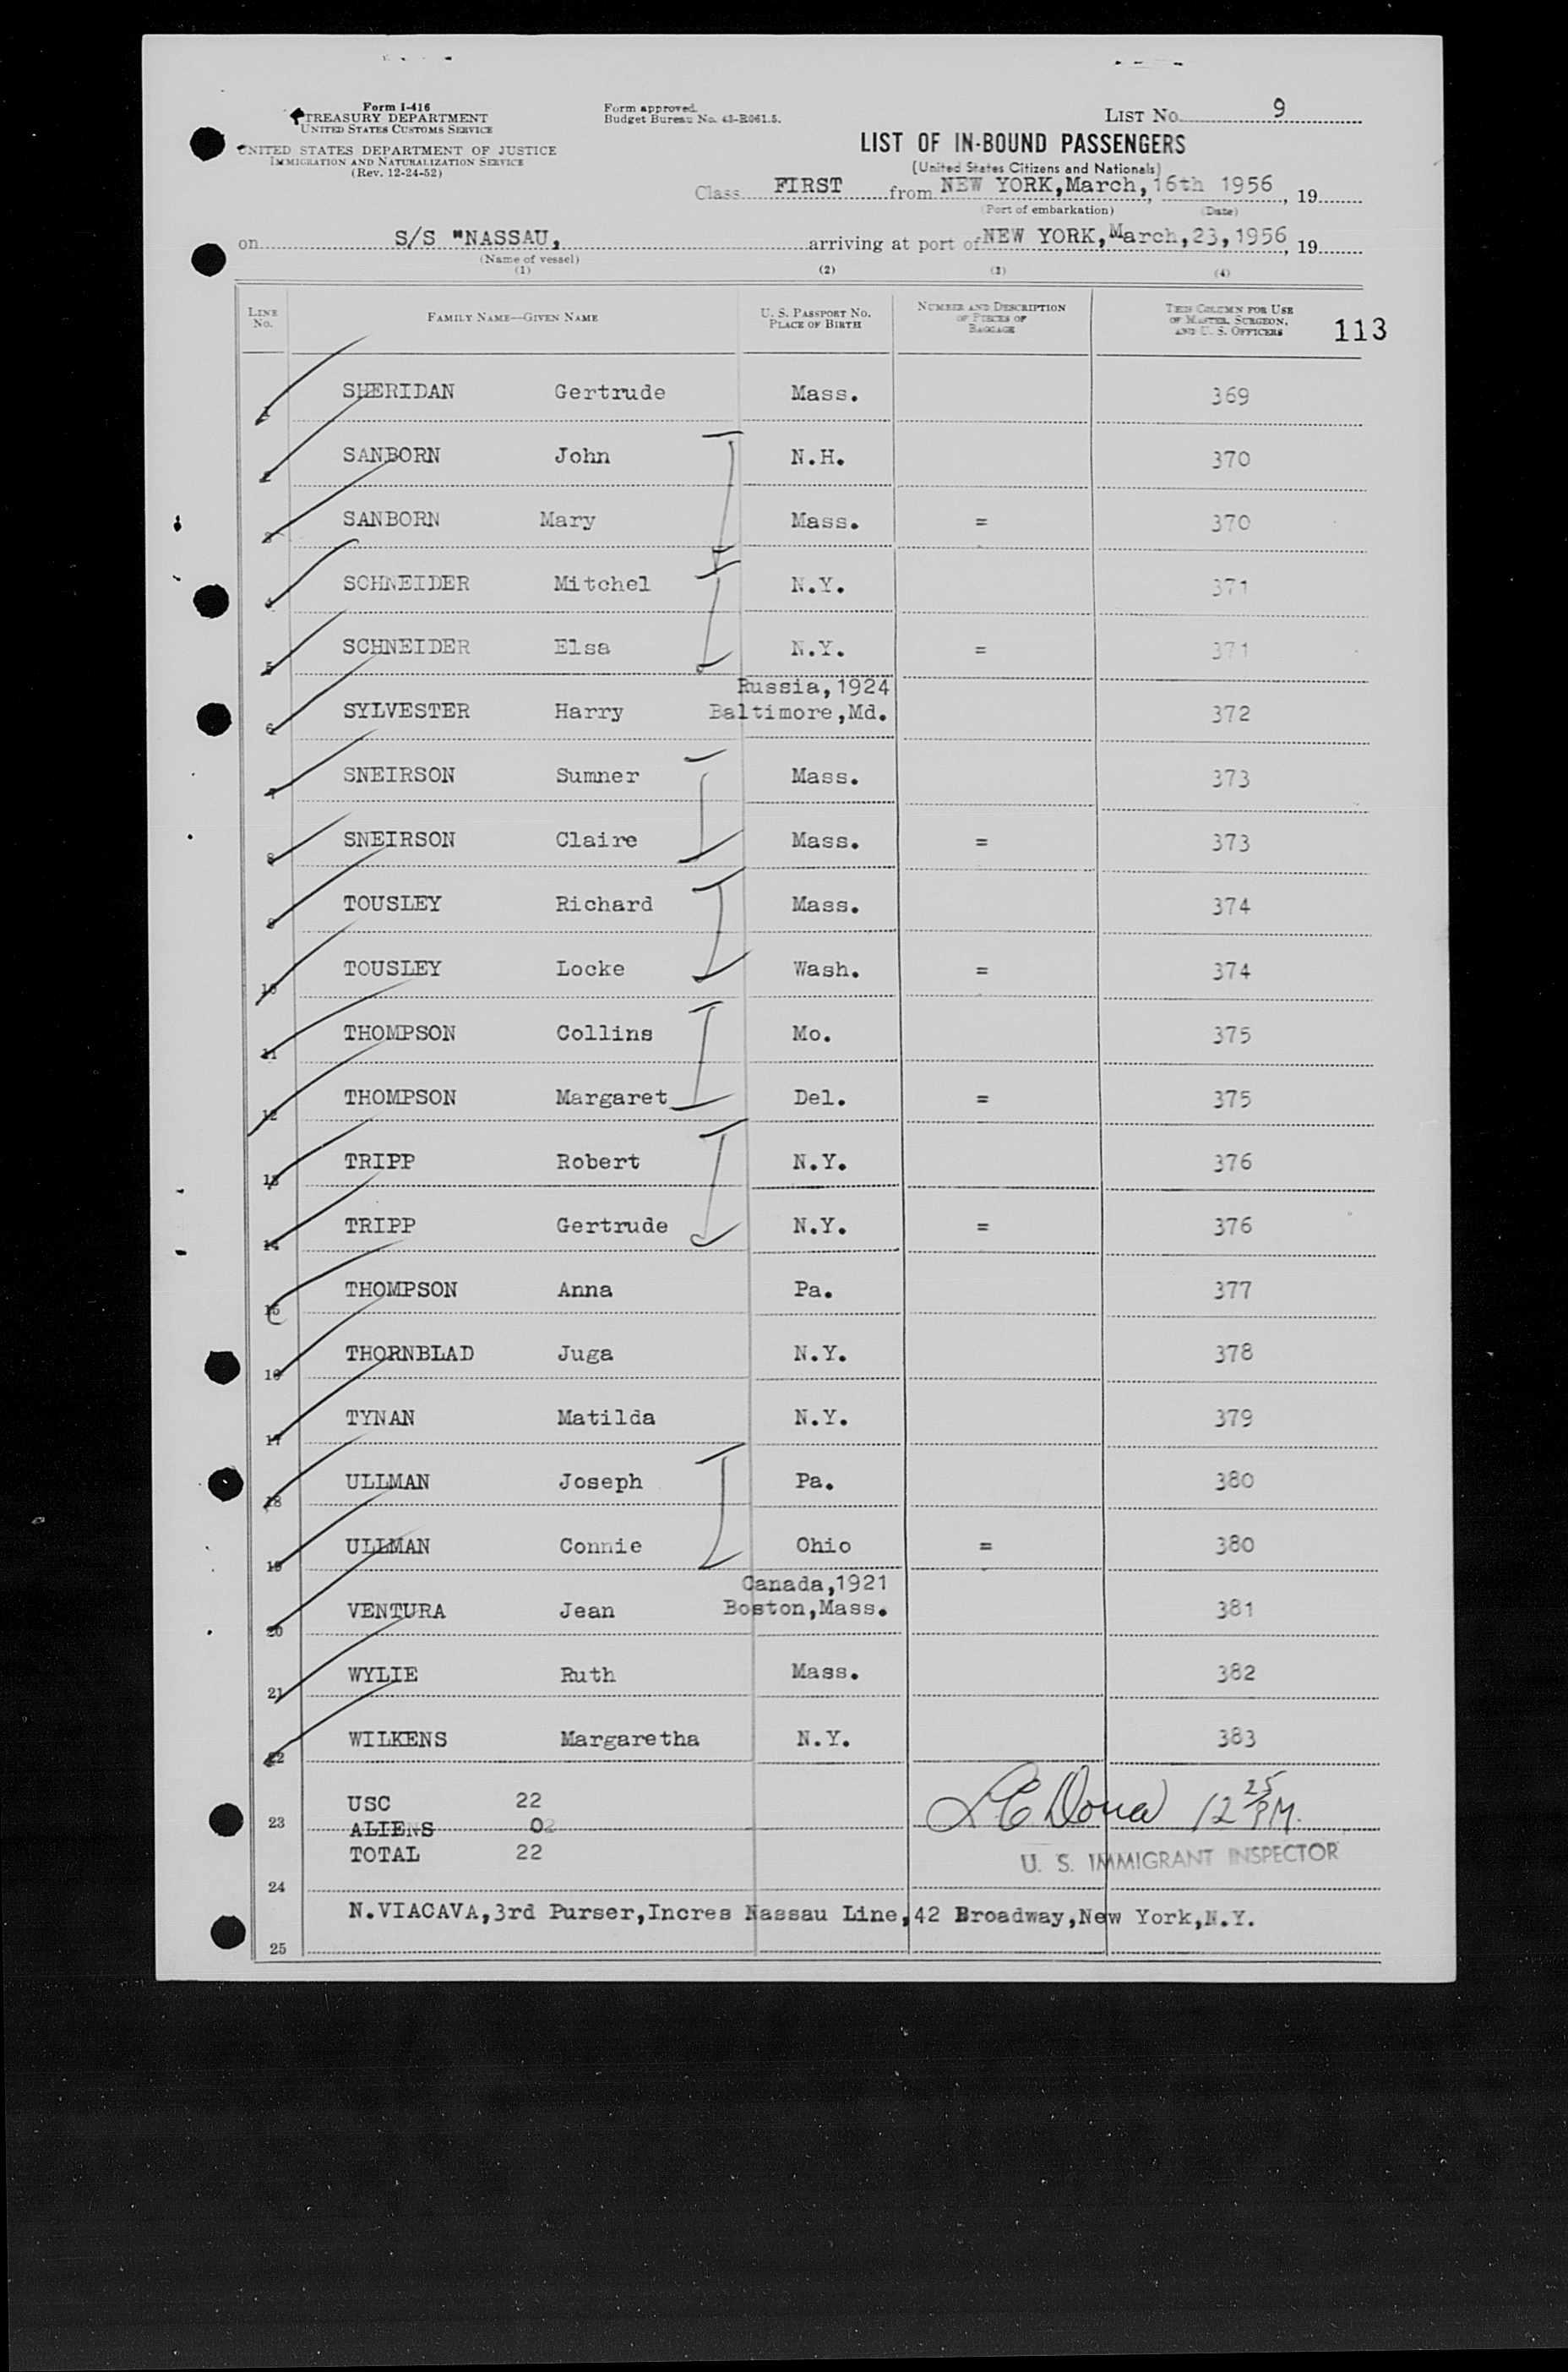 Form I-416
TREASURY DEPARTMENT
UNITED STATES CUSTOMS SERVICE
UNITED STATES DEPARTMENT OF JUSTICE
IMMIGRATION AND NATURALIZATION SERVICE
(Rev. 12-24-52)
Form approved.
Budget Bureau No. 43-R061.5.
LIST No. 9
LIST OF IN-BOUND PASSENGERS
(United States Citizens and Nationals)
Class FIRST from NEW YORK,March, 16th 1956, 19
(Port of embarkation) (Date)
on S/S "NASSAU, arriving at port of NEW YORK,March,23,1956, 19
(Name of vessel)
(1) (2) (3) (4)
LINE No. FAMILY NAME—GIVEN NAME U. S. PASSPORT No. PLACE OF BIRTH NUMBER AND DESCRIPTION OF PIECES OF BAGGAGE THIS COLUMN FOR USE OF MASTER, SURGEON, AND U. S. OFFICERS 113
1 SHERIDAN Gertrude Mass. 369
2 SANBORN John N.H. 370
3 SANBORN Mary Mass. = 370
4 SCHNEIDER Mitchel N.Y. 371
5 SCHNEIDER Elsa N.Y. = 371
Russia,1924
6 SYLVESTER Harry Baltimore,Md. 372
7 SNEIRSON Sumner Mass. 373
8 SNEIRSON Claire Mass. = 373
9 TOUSLEY Richard Mass. 374
10 TOUSLEY Locke Wash. = 374
11 THOMPSON Collins Mo. 375
12 THOMPSON Margaret Del. = 375
13 TRIPP Robert N.Y. 376
14 TRIPP Gertrude N.Y. = 376
15 THOMPSON Anna Pa. 377
16 THORNBLAD Juga N.Y. 378
17 TYNAN Matilda N.Y. 379
18 ULLMAN Joseph Pa. 380
19 ULLMAN Connie Ohio = 380
Canada,1921
20 VENTURA Jean Boston,Mass. 381
21 WYLIE Ruth Mass. 382
22 WILKENS Margaretha N.Y. 383
USC 22
23 ALIENS 0 12 25 PM.
TOTAL 22
U. S. IMMIGRANT INSPECTOR
24
N.VIACAVA,3rd Purser,Incres Nassau Line,42 Broadway,New York,N.Y.
25